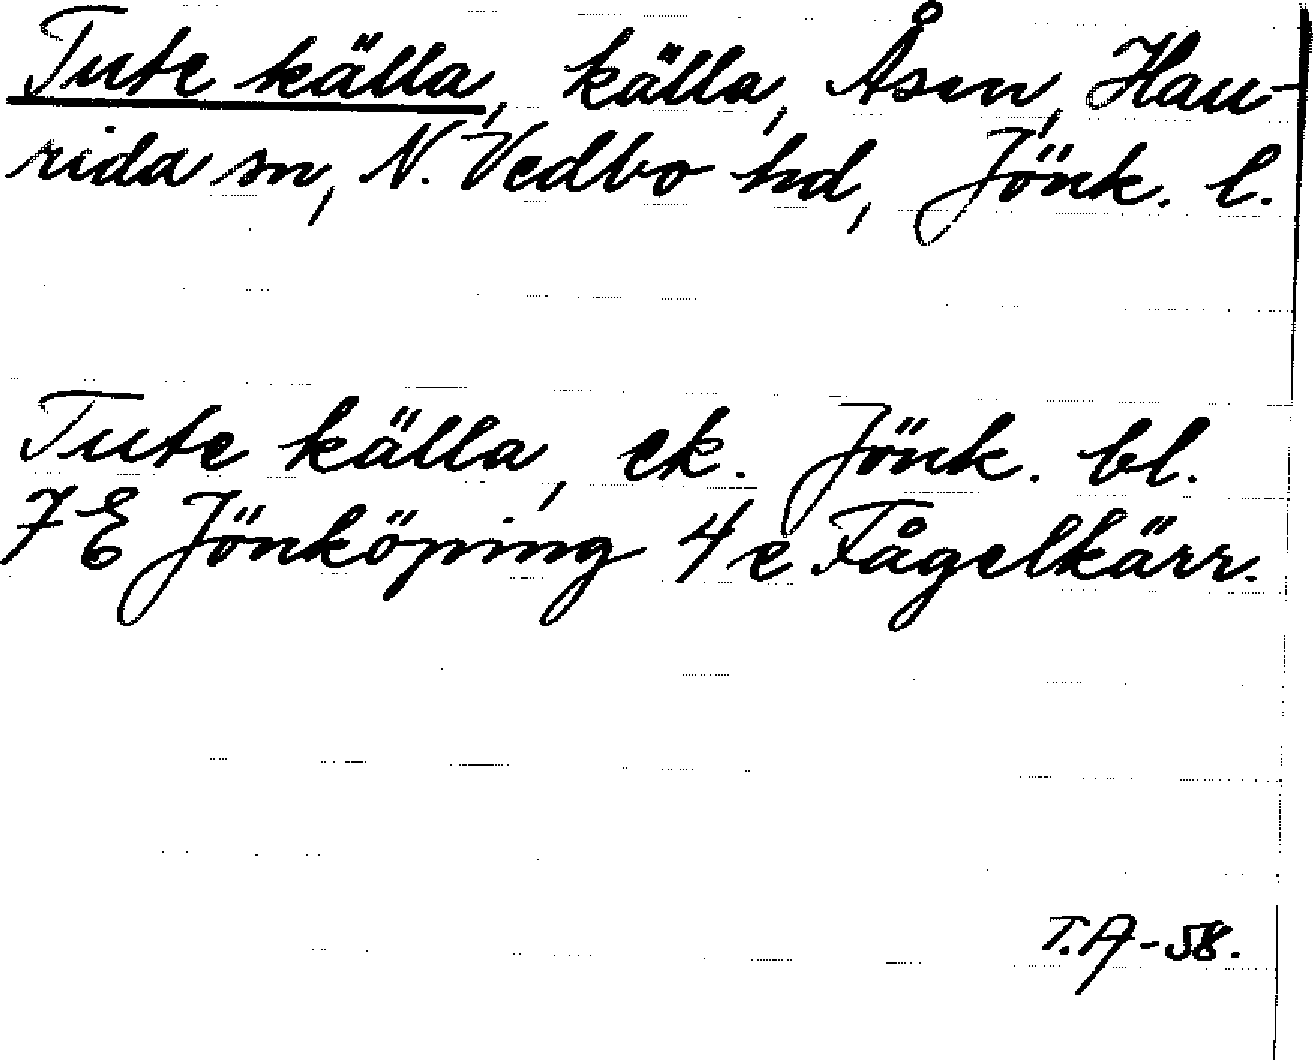 Tute källa, källa, Åsen, Hau-
rida sn, N. Vedbo hd, Jönk. l.
Tute källa, ek. Jönk. bl.
7E Jönköping 4e Fågelkärr.
T.A-58.